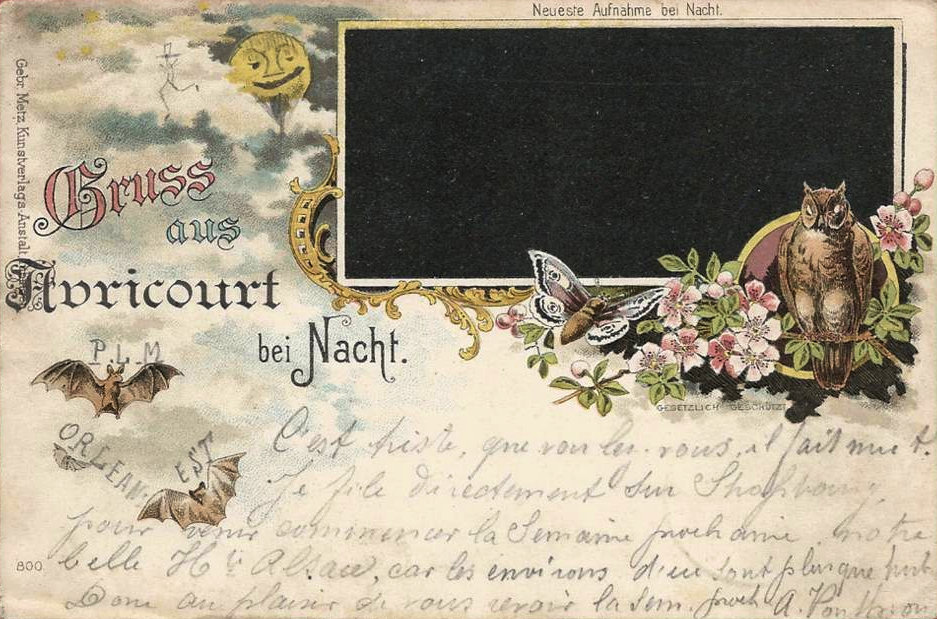 Neueste Aufnahme bei Nacht.
Gebr. Metz, Kunstverlags-Anstalt
Gruss
aus
Avricourt
bei Nacht.
P.L.M
ORLEAN
EST
GESETZLICH GESCHÜTZT
C'est triste, que voulez-vous, il fait nuit.
Je file directement sur
pour venir commencer la Semaine prochaine, notre
belle Hte Alsace, car les environs d'ici sont plus que
Donc au plaisir de vous revoir la sem. proch A.
800